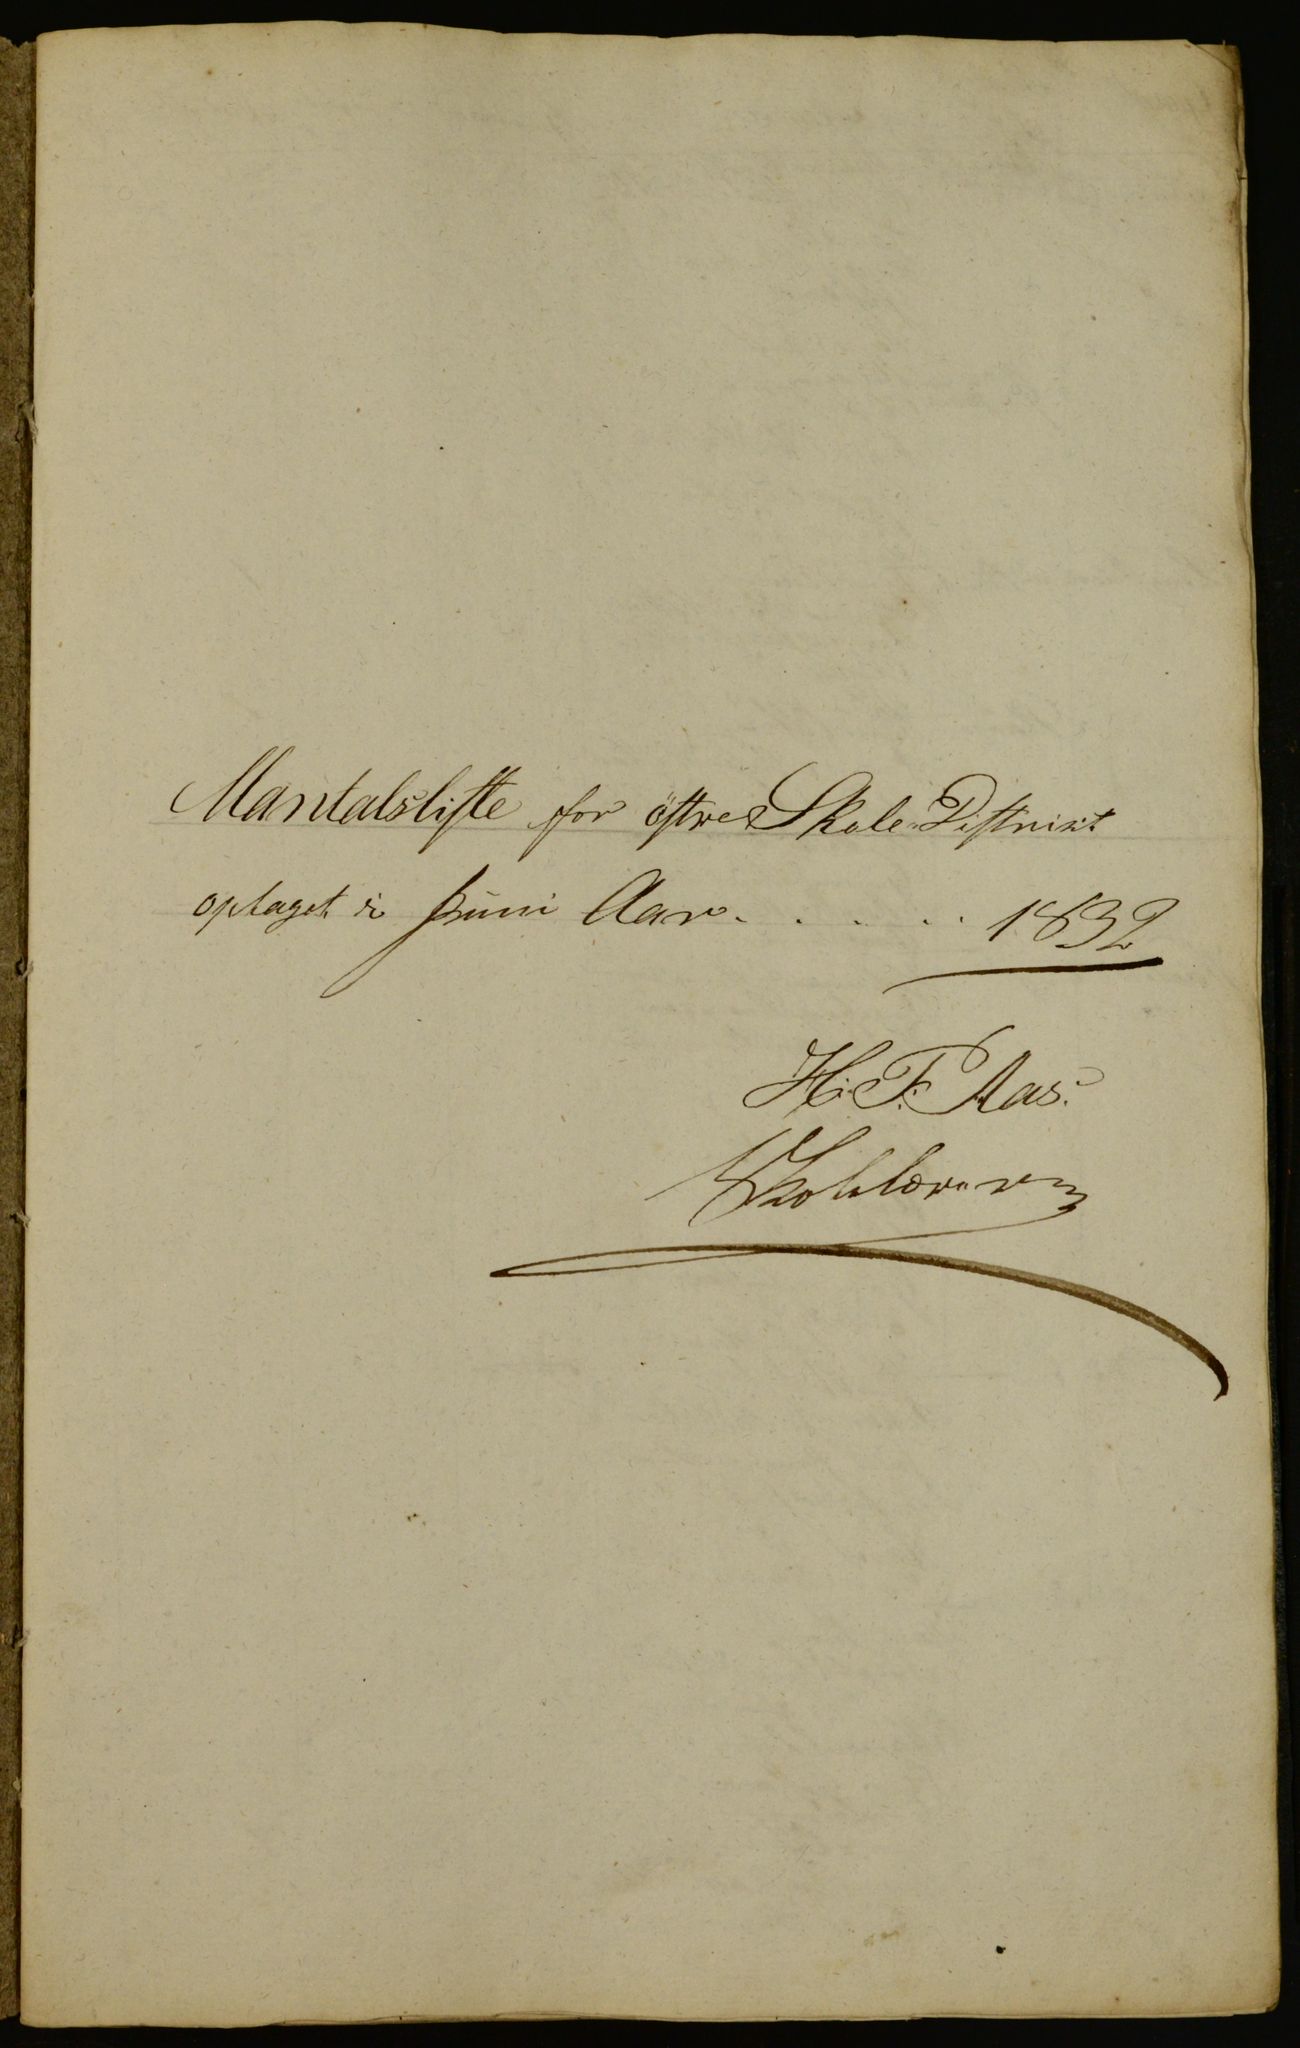 Mantalsliste for östre Skole-District
optaget i Juni Aar. . . . . . 1832
H. F. Aas.
Skolelærer